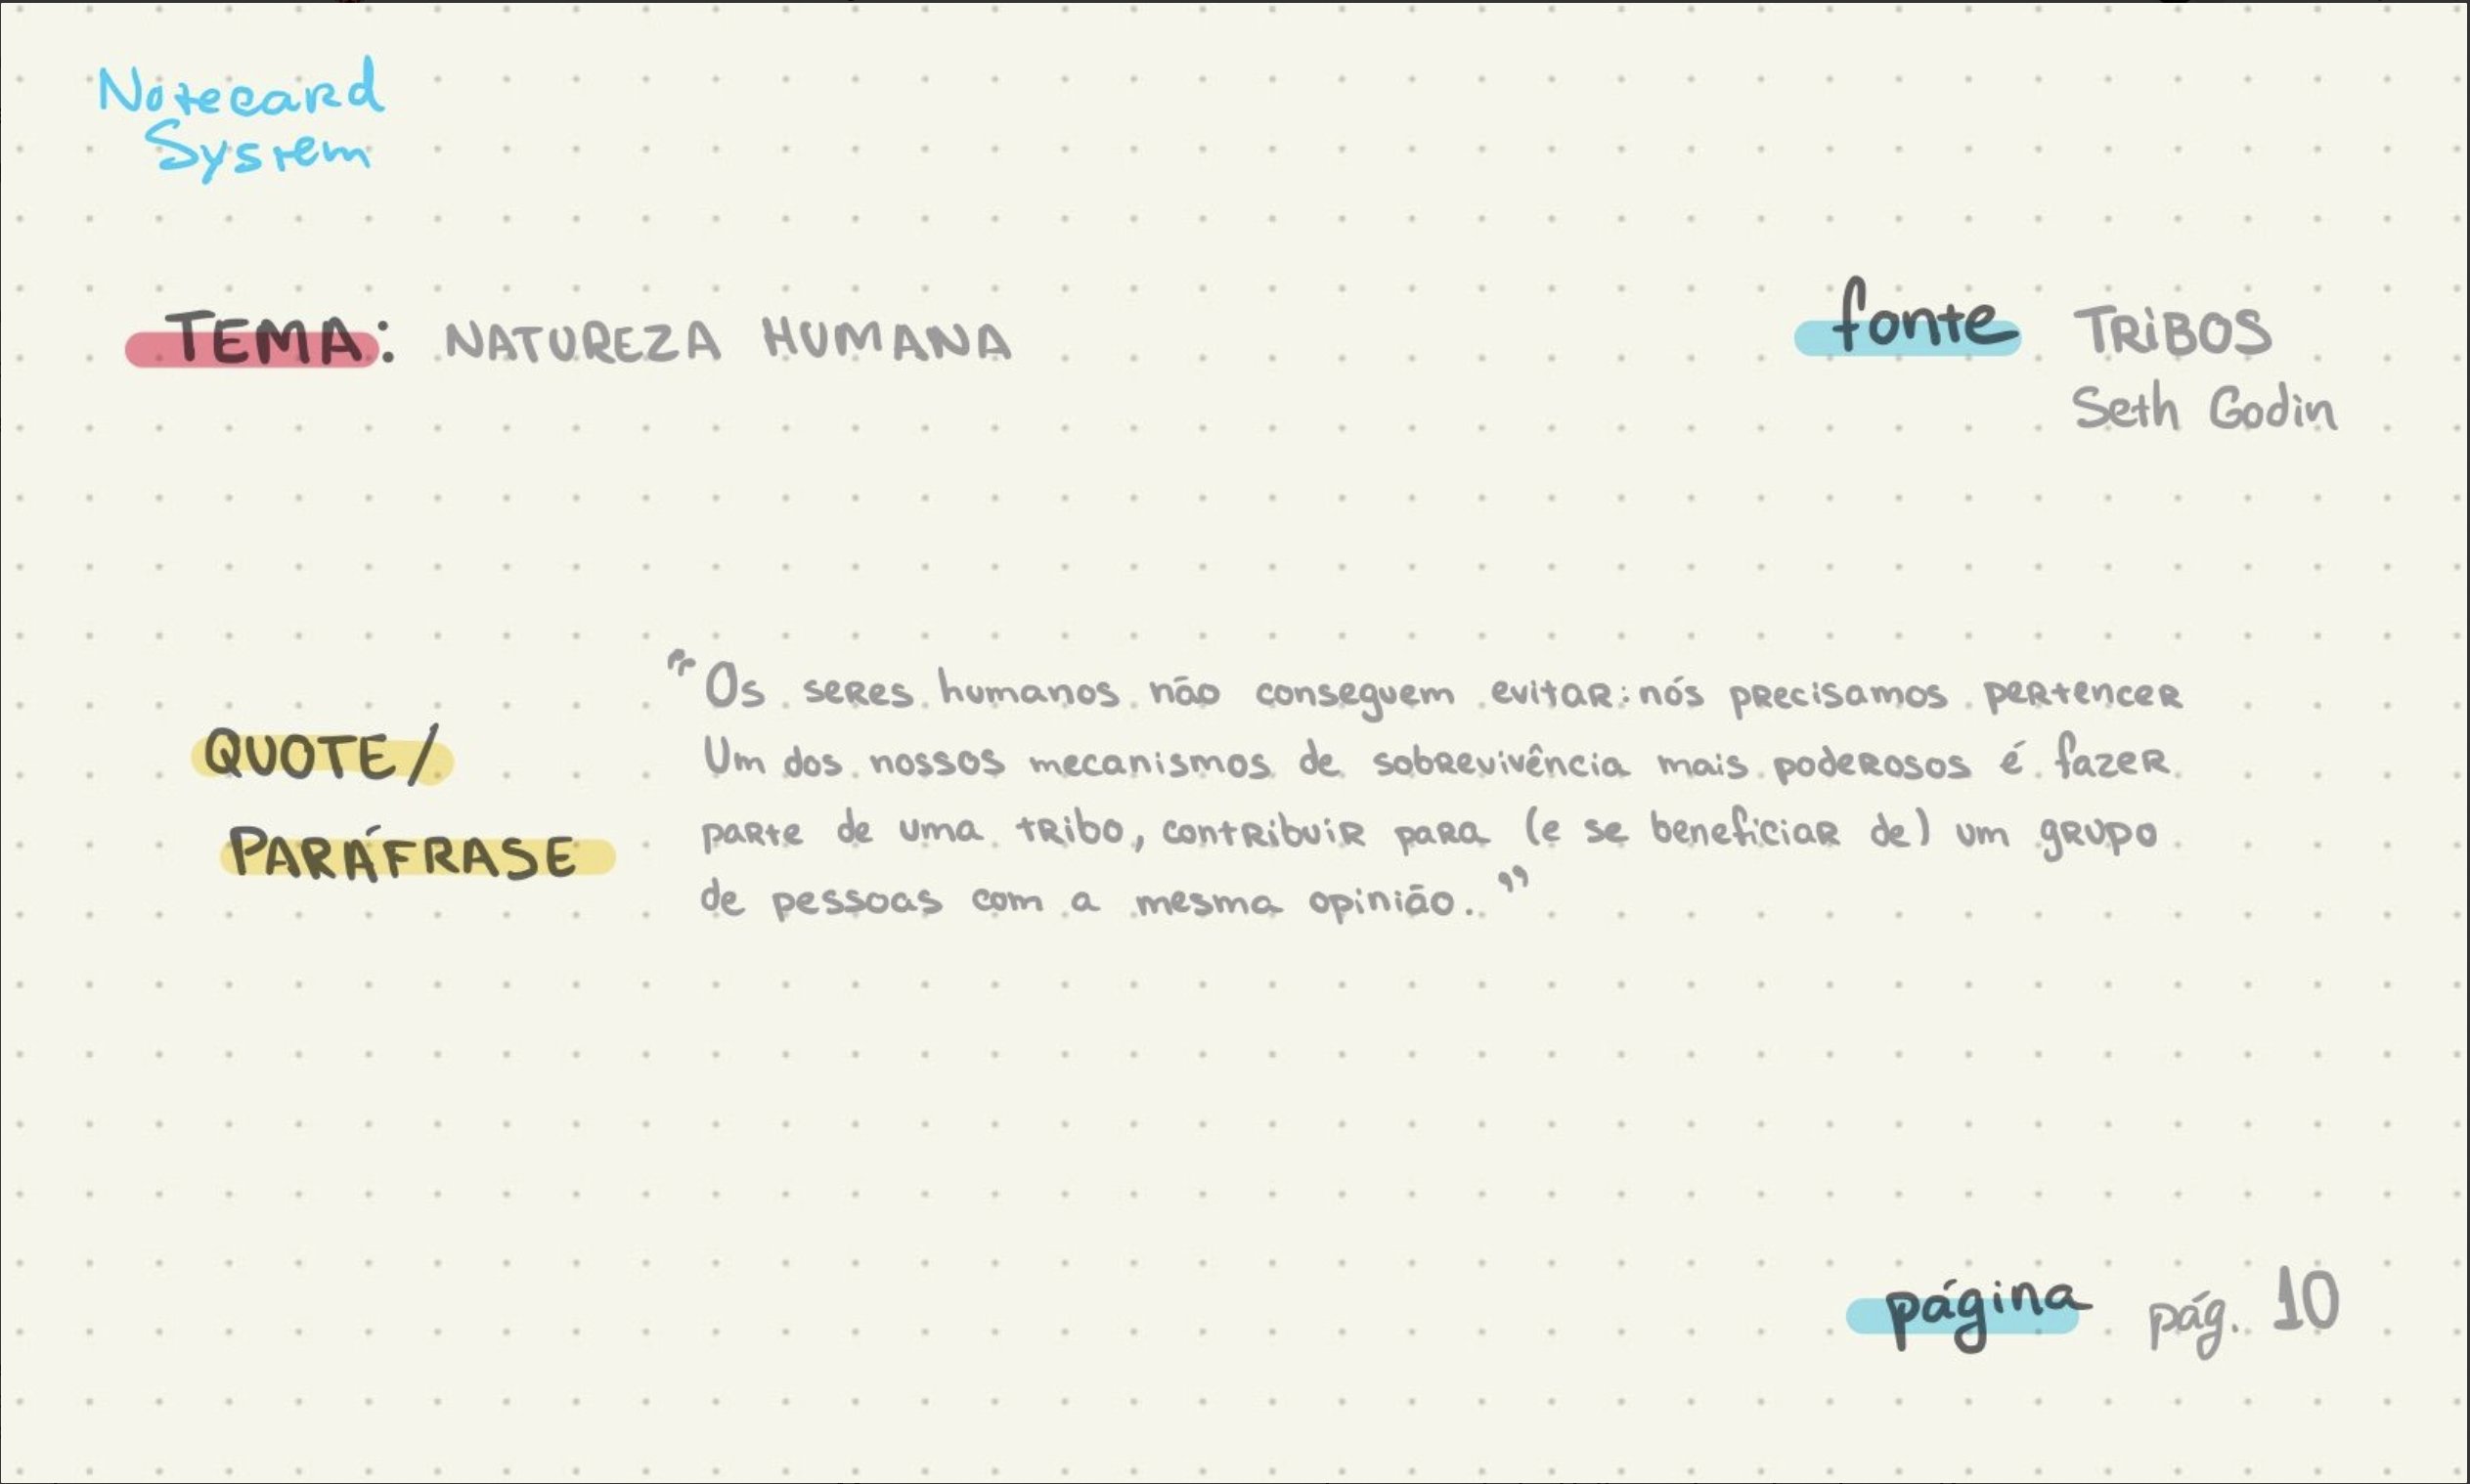 Notecard
System
TEMA: NATUREZA HUMANA
fonte TRIBOS
Seth Godin
QUOTE/
PARÁFRASE
"Os seres humanos não conseguem evitar: nós precisamos pertencer
Um dos nossos mecanismos de sobrevivência mais poderosos é fazer
parte de uma tribo, contribuir para (e se beneficiar de) um grupo
de pessoas com a mesma opinião."
página pág. 10